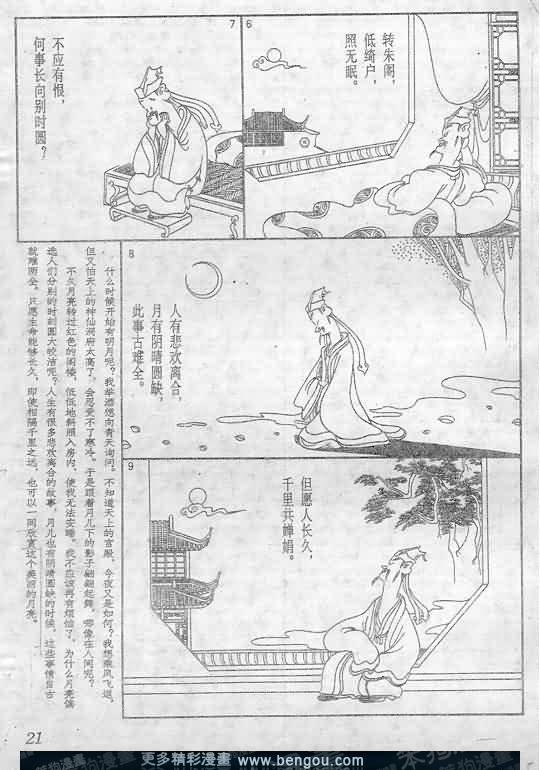 6
转朱阁，
低绮户，
照无眠。
7
不应有恨，
何事长向别时圆？
8
人有悲欢离合，
月有阴晴圆缺，
此事古难全。
9
但愿人长久，
千里共婵娟。
什么时候开始有明月呢？我举酒想向青天询问。不知道天上的宫殿，今夜又是如何？我想乘风飞返，
但又怕天上的神仙洞府太高了，会忍受不了寒冷。于是跟着月儿下的影子翩翩起舞，哪像在人间呢？
不久月亮转过红色的阁楼，低低地斜照入房内，使我无法安睡。我不应该再有烦恼了，为什么月亮偏
选人们分别的时刻圆大皎洁呢？人生有很多悲欢离合的故事，月儿也有阴晴圆缺的时候，这些事情自古
就难两全。只愿生命能够长久，即使相隔千里之远，也可以一同欣赏这个美丽的月亮。
21
更多精彩漫畫 www.bengou.com